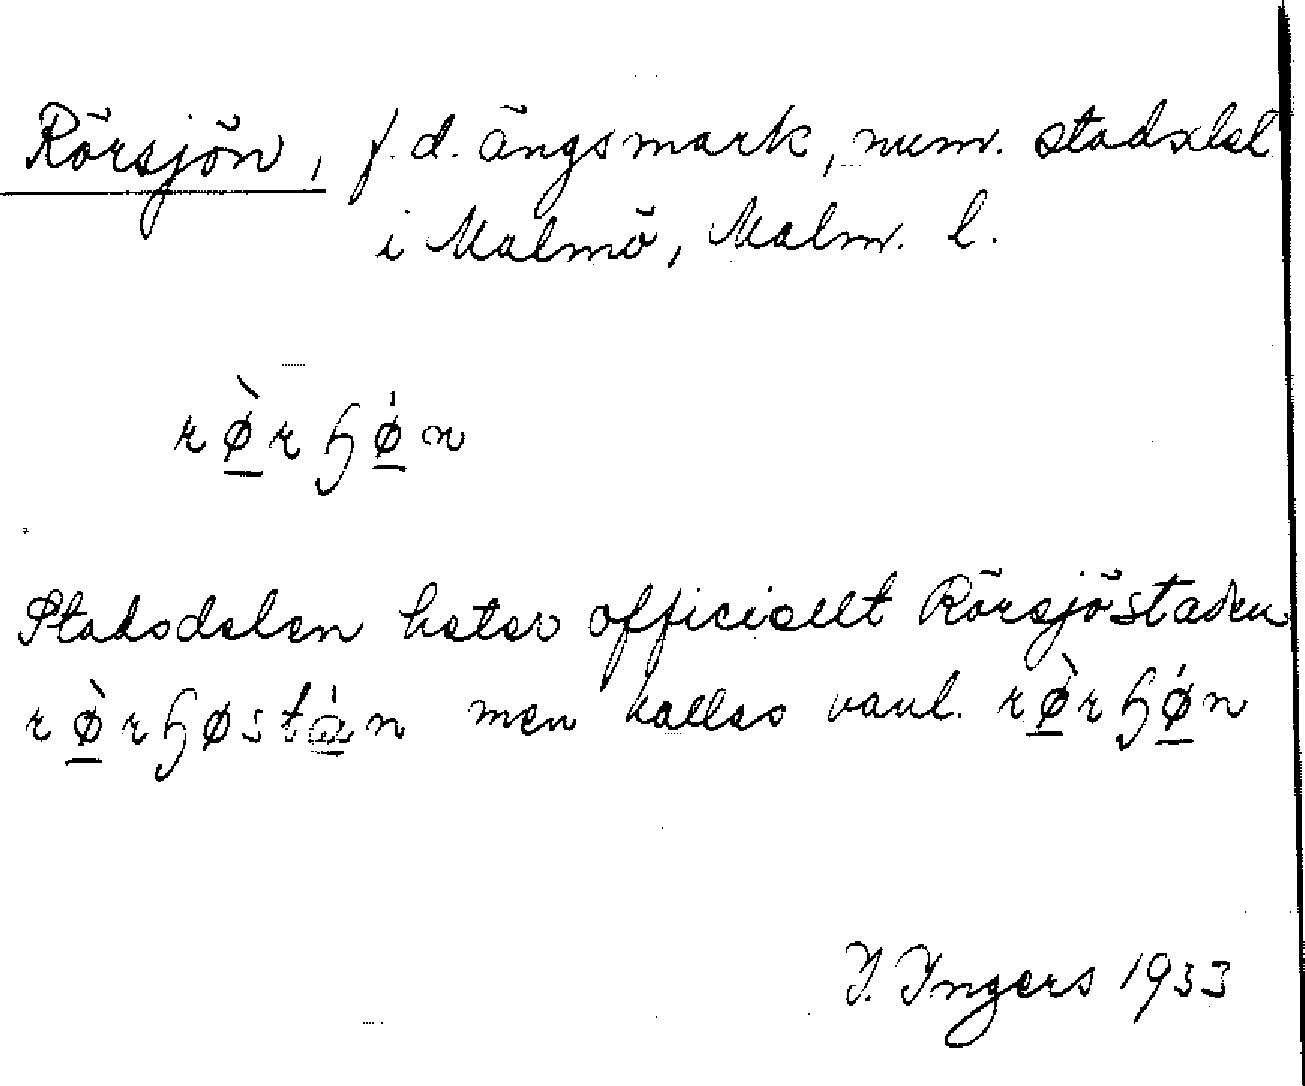 Rörsjön, f.d. ängsmark, num. stadsdel
i Malmö, Malm. l.
rø̲̀rɧǿ̲n
Stadsdelen heter officiellt Rörsjöstaden
rø̲̀rɧøstá̲n men kallas vanl. rø̲̀rɧǿ̲n
I. Ingers 1933